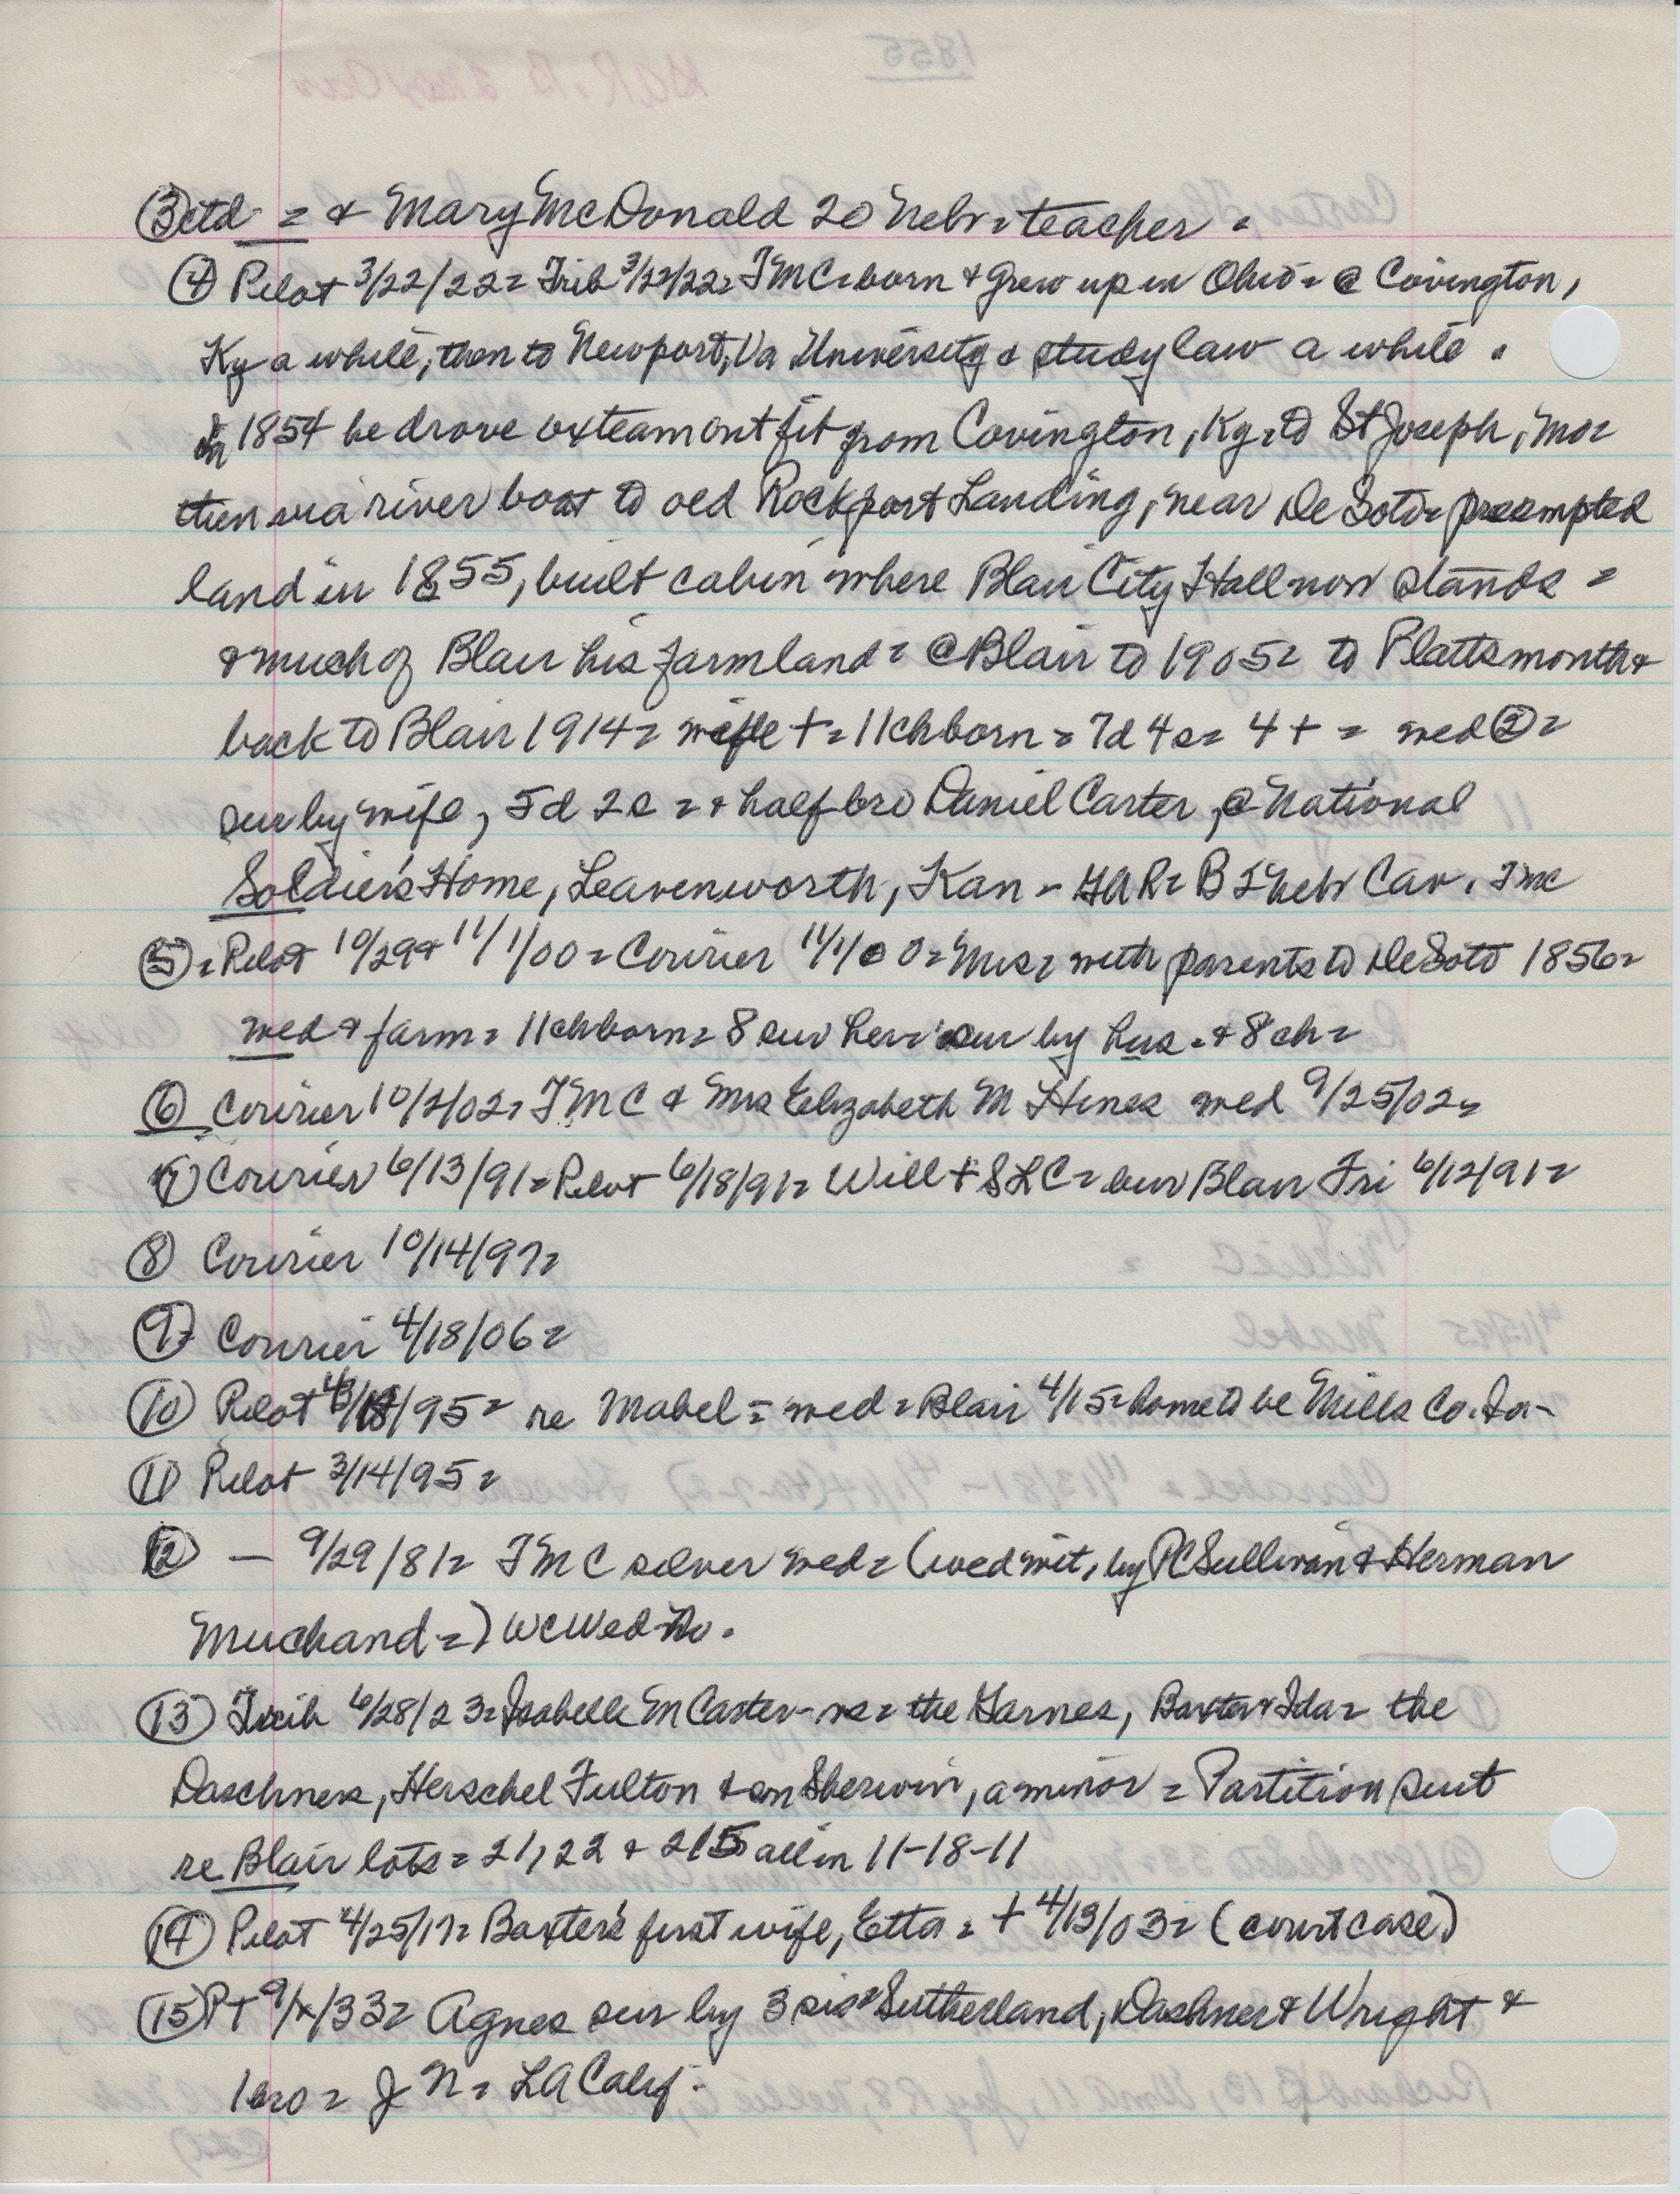 ③ctd = & Mary McDonald 20 Nebr = teacher =
④ Pilot 3/22/22 = Trib 3/22/22 = TMC = born & grew up in Ohio = @ Covington,
Ky a while, then to Newport, Va University & study law a while.
In 1854 he drove oxteam outfit from Covington, Ky = to St Joseph, Mo =
then via river boat to old Rockport Landing, near DeSoto = preempted
land in 1855, built cabin where Blair City Hall now stands =
& much of Blair his farmland = @ Blair to 1905 = to Plattsmouth &
back to Blair 1914 = wife + = 11 ch born = 7d 4s = 4 + = wed ② =
sur by wife, 5d 2s = & half bro Daniel Carter, @ National
Soldier's Home, Leavenworth, Kan - GAR = B I Nebr Cav. TMC
⑤ = Pilot 10/29 & 11/1/00 = Courier 11/1/00 = Mrs = with parents to DeSoto 1856 =
wed & farm = 11 ch born = 8 sur her = sur by hus. & 8 ch =
⑥ Courier 10/2/02 = TMC & Mrs Elizabeth M Hines wed 9/25/02 =
⑦ Courier 6/13/91 = Pilot 6/18/91 = Will + SLC = bur Blair Fri 6/12/91 =
⑧ Courier 10/14/97 =
⑨ Courier 4/18/06 =
⑩ Pilot 4/18/95 = re Mabel = wed = Blair 4/15 = home to be Mills Co. Ia -
⑪ Pilot 3/14/95 =
⑫ — 9/29/81 = TMC silver wed = (wed wit, by PC Sullivan & Herman
=) WC Wed
⑬ Trib 6/28/23 = Isabelle M Carter - vs = the Garnes, Baxter & Ida = the
Daschners, Herschel Fulton & son Sherwin, a minor = Partition suit
re Blair lots = 21, 22 & 215 all in 11-18-11
⑭ Pilot 4/25/17 = Baxter's first wife, Etta = + 4/13/03 = (court case)
⑮ PT 9/x/33 = Agnes sur by 3 sis = Sutherland, Dashner & Wright &
1 bro = J N = LA Calif -